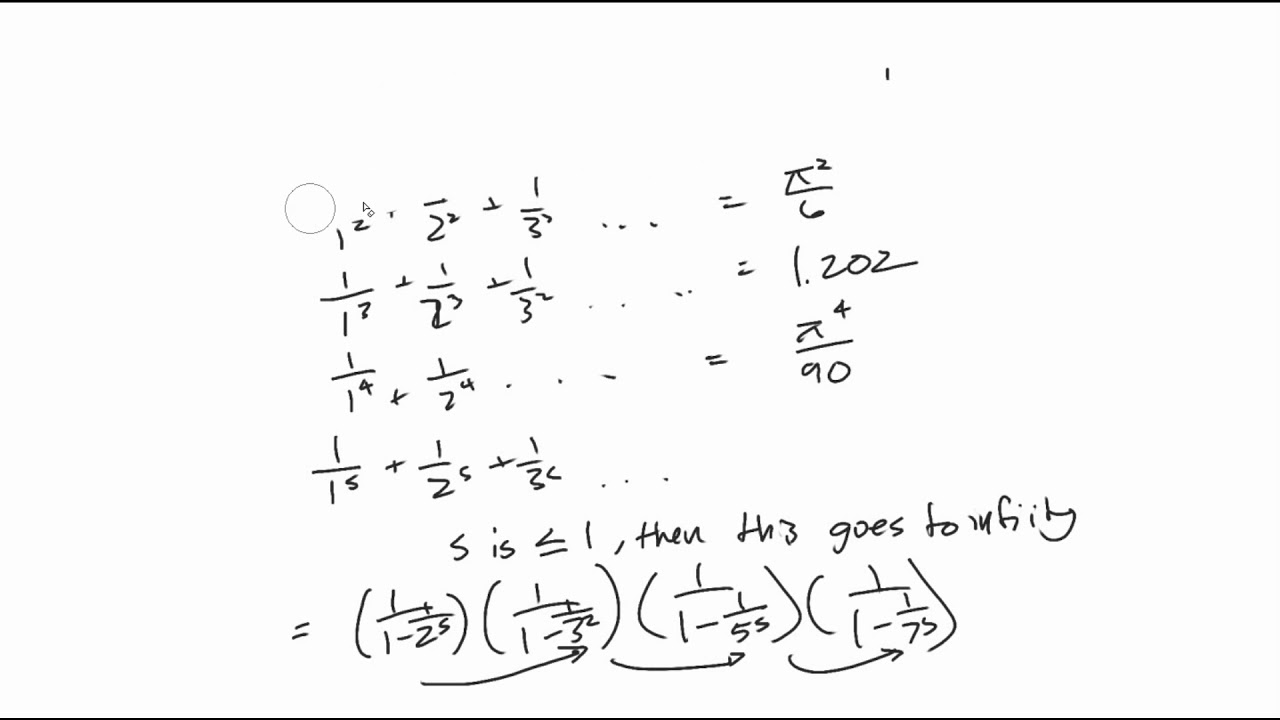 1
1² + 2² + 1/3² ... = π²/6
1/1³ + 1/2³ + 1/3² ... = 1.202
1/1⁴ + 1/2⁴ ... = π⁴/90
1/1ˢ + 1/2ˢ + 1/3ˢ ...
s is ≤ 1, then this goes to infiity
= (1/(1-1/2ˢ)) (1/(1-1/3²)) (1/(1-1/5ˢ)) (1/(1-1/7ˢ))